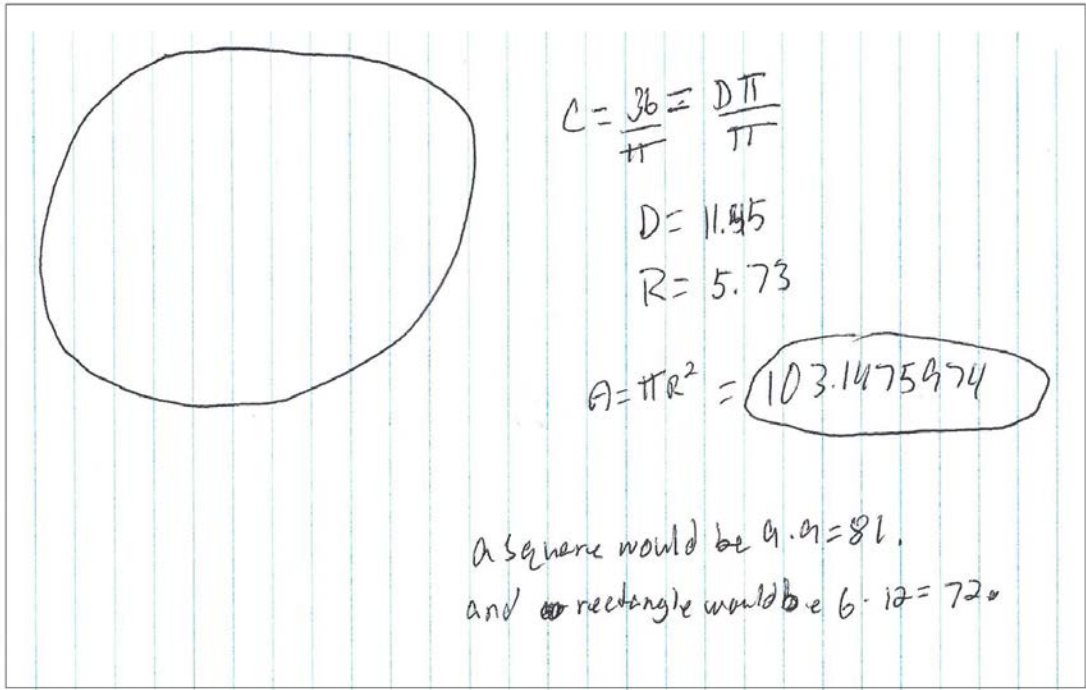 C = 36/π = Dπ/π
D = 11.45
R = 5.73
A = πR² = 103.1475974
a square would be 9·9=81.
and rectangle would be 6·12=72.